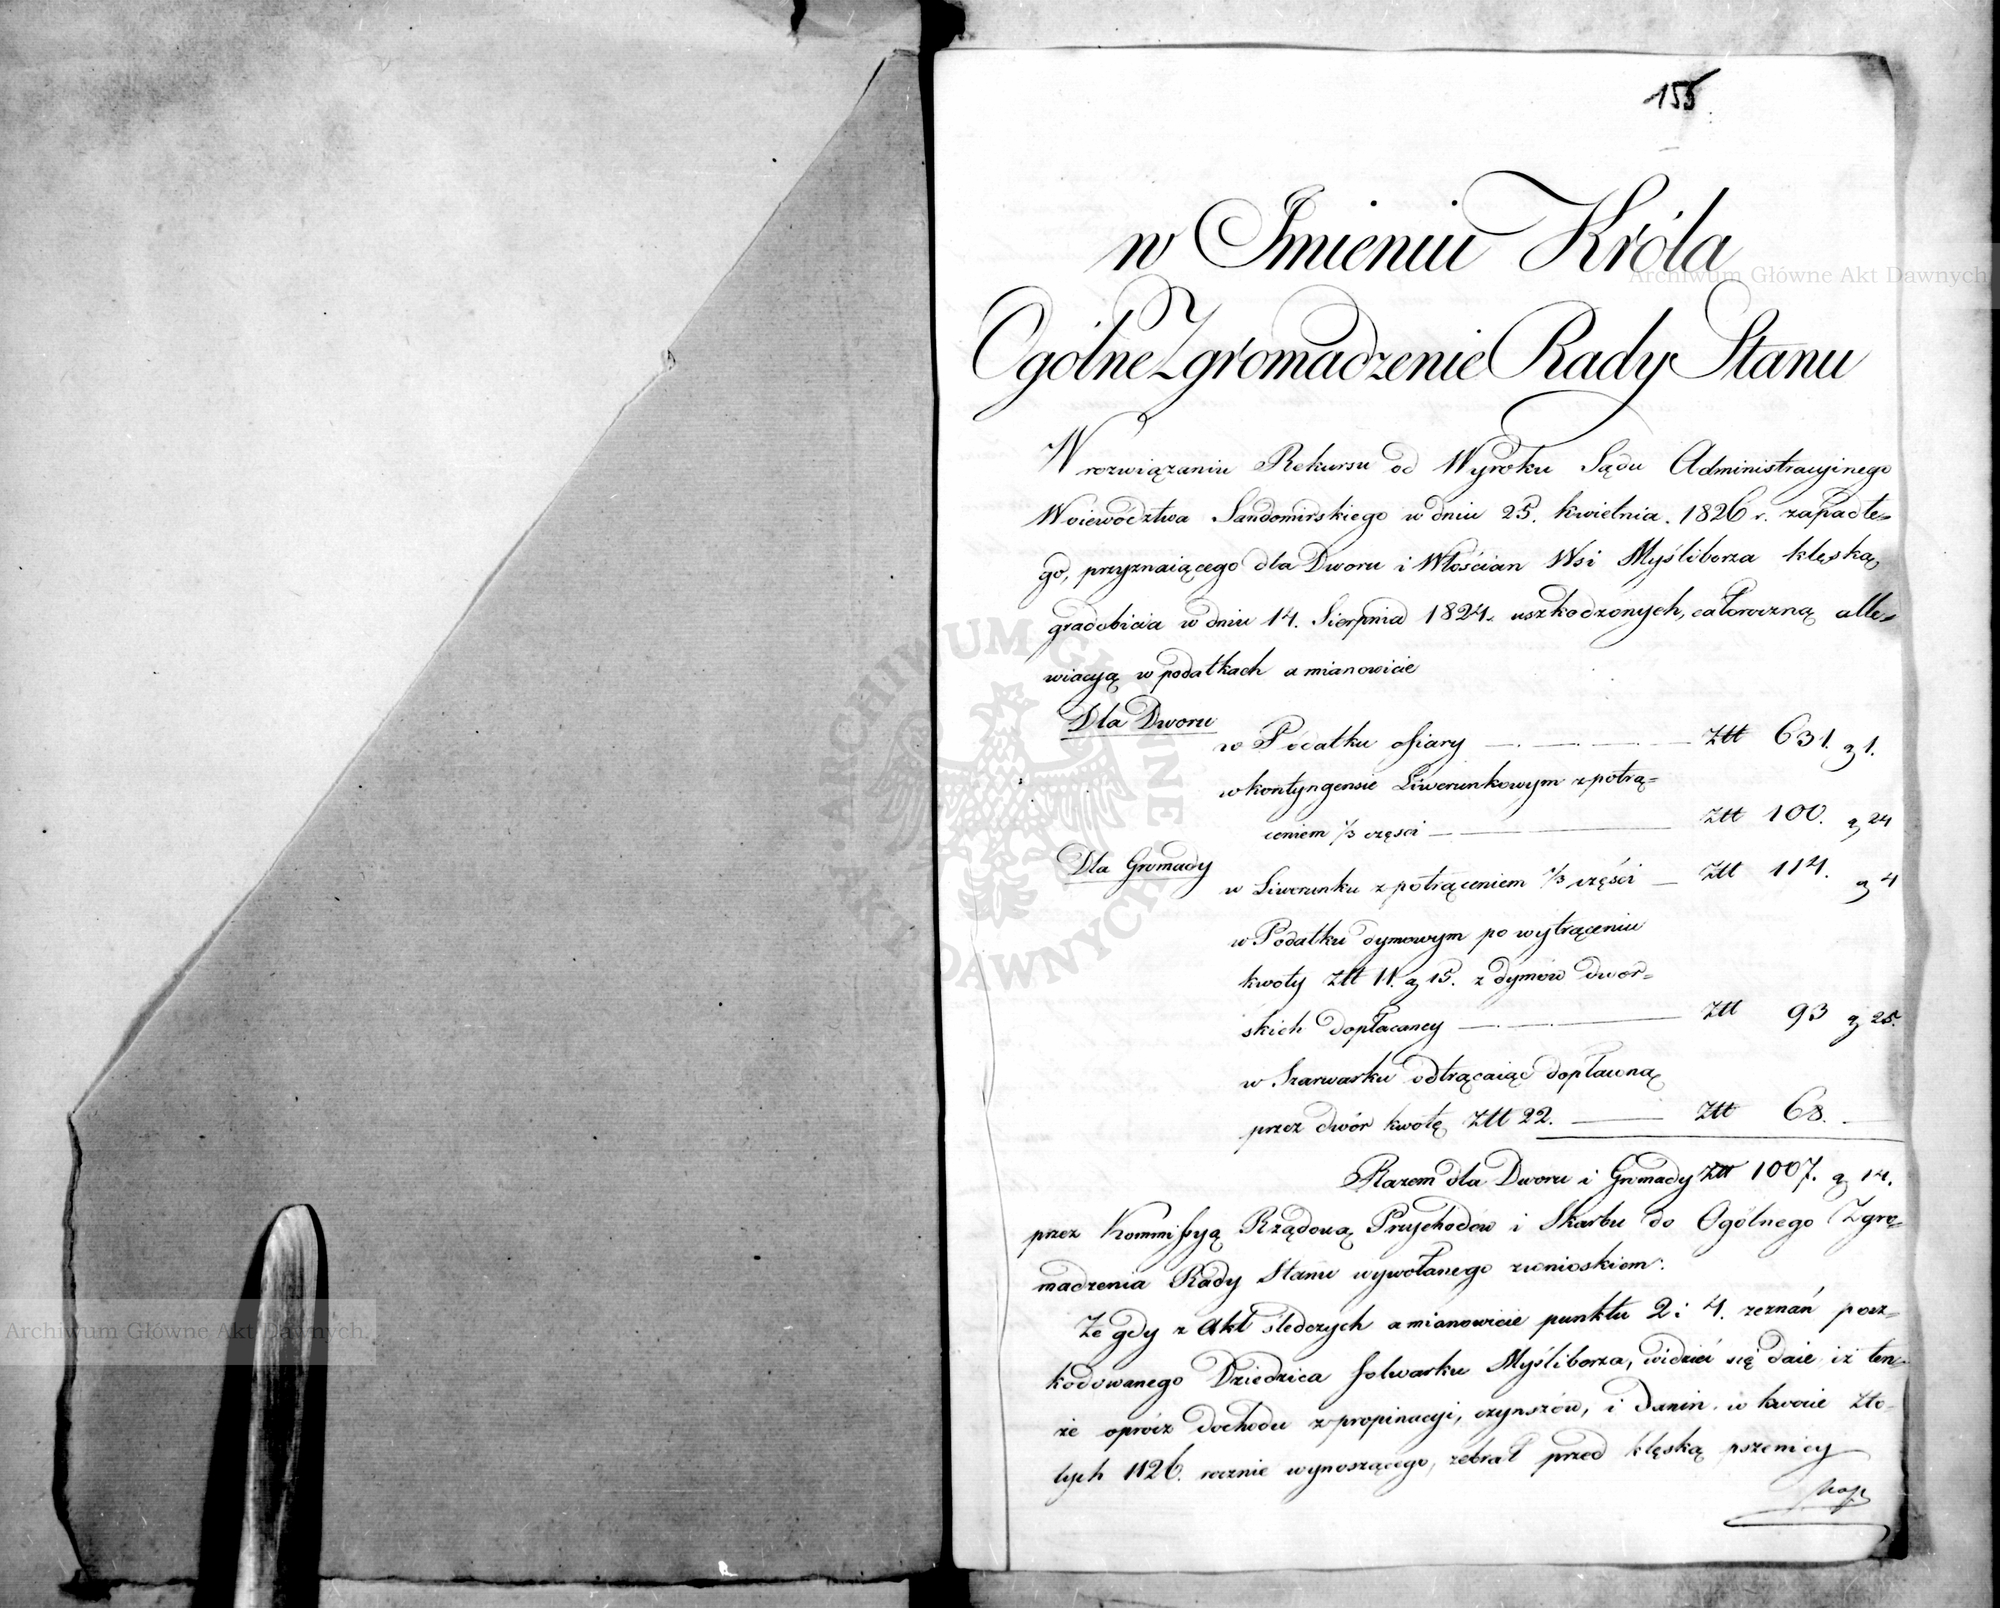 155
w Imieniu Króla
Ogólne Zgromadzenie Rady Stanu
W rozwiązaniu Rekursu od Wyroku Sądu Administracyinego
Woiewództwa Sandomirskiego w dniu 25. kwietnia. 1826 r. zapadłe=
go, przyznaiącego dla Dworu i Włościan Wsi Myśliborza klęską
gradobicia w dniu 14. Sierpnia 1824. uszkodzonych, całoroczną alle=
wiacyą w podatkach a mianowicie
Dla Dworu
w Podatku ofiary — Złt 631. g 1.
w kontyngensie Liwerunkowym z potrą=
ceniem 1/3 części — Złt 100. g 24
Dla Gromady
w Liwerunku z potrąceniem 1/3 części — Złt 114. g 4
w Podatku dymowym po wytrąceniu
kwoty Złt 11. g 15. z dymów dwor=
skich dopłacaney — Złt 93 g 25.
w Szarwarku odtrącaiąc dopłacną
przez dwór kwotę Złt 22. — Złt 68. —
Razem dla Dworu i Gromady Złt 1007. g 14.
przez Kommissyą Rządową Przychodów i Skarbu do Ogólnego Zgro=
madzenia Rady Stanu wywołanego z wnioskiem:
Że gdy z Akt śledczych a mianowicie punktu 2 i 4. zeznań posz=
kodowanego Dziedzica folwarku Myśliborza, widzieć się daie iż ten=
że oprócz dochodu z propinacyi, czynszów, i Danin. w kwocie zło=
tych 1126. rocznie wynoszącego, zebrał przed klęską pszenicy
kop
Archiwum Główne Akt Dawnych
Archiwum Główne Akt Dawnych
ARCHIWUM GŁÓWNE AKT DAWNYCH